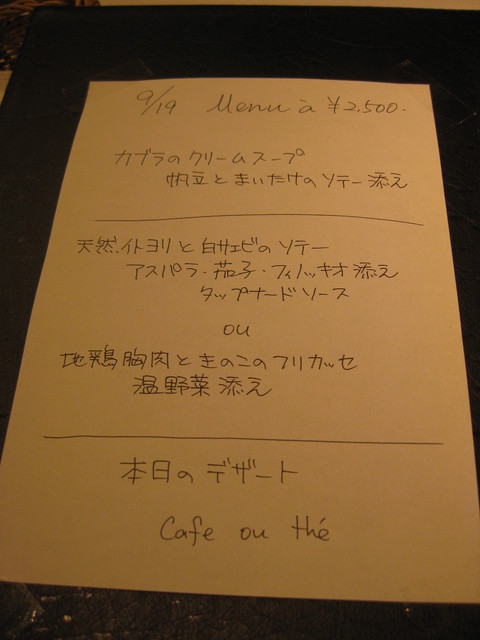 9/19 Menu à ¥2,500.
カブラのクリームスープ
帆立とまいたけのソテー添え
天然イトヨリと白サエビのソテー
アスパラ・茄子・フィノッキオ添え
タップナードソース
ou
地鶏胸肉ときのこのフリカッセ
温野菜添え
本日のデザート
Cafe ou thé